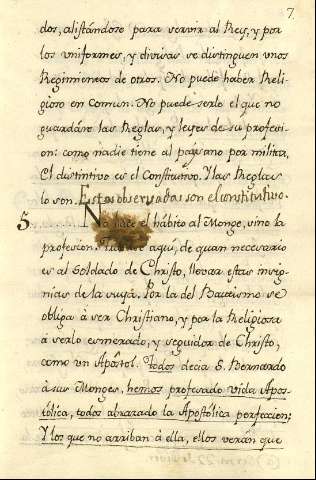 7.
dos, alistandose para servir al Rey, y por
los uniformes, y divisas se distinguen unos
Regimientos de otros. No puede haber Reli-
gioso en comun. No puede serlo el que no
guardáre las Reglas, y leyes de su profesi-
on: como nadie tiene al paysano por militar.
El distintivo es el Constitutivo. Y las Reglas
lo son. Estas observadas son el constitutivo.
5 No hace el hábito al Monge, sino la
profesion. aquí, de quan necesario
es al Soldado de Christo, llevar estas insig-
nias de la suya. Por la del Bautismo se
obliga à ser Christiano, y por la Religiosa
à serlo esmerado, y seguidor de Christo,
como un Apóstol. Todos decia S. Bernardo
à sus Monges, hemos profesado vida Apos-
tólica, todos abrazado la Apostólica perfeccion;
Y los que no arriban à ella, ellos verán que